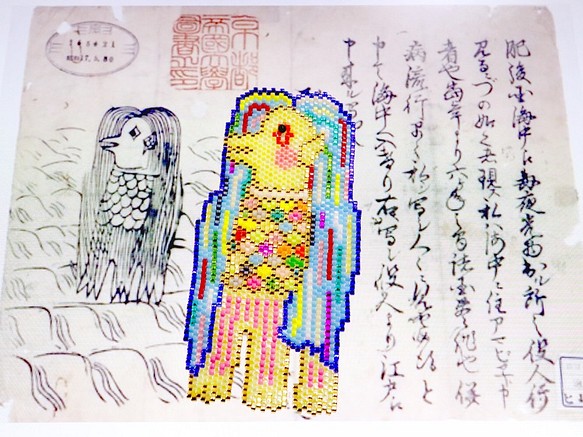 京都
帝國大學
圖書之印
肥後国海中え毎夜光物出ル所之役人行
見るニづの如く者現ス私ハ海中ニ住アマビヱト申
者也当年より六ヶ年之間諸国豊作也併
病流行早々私シ写シ人々ニ見セ候得と
申て海中へ入けり右ハ写シ役人より江戸え
申来ル写